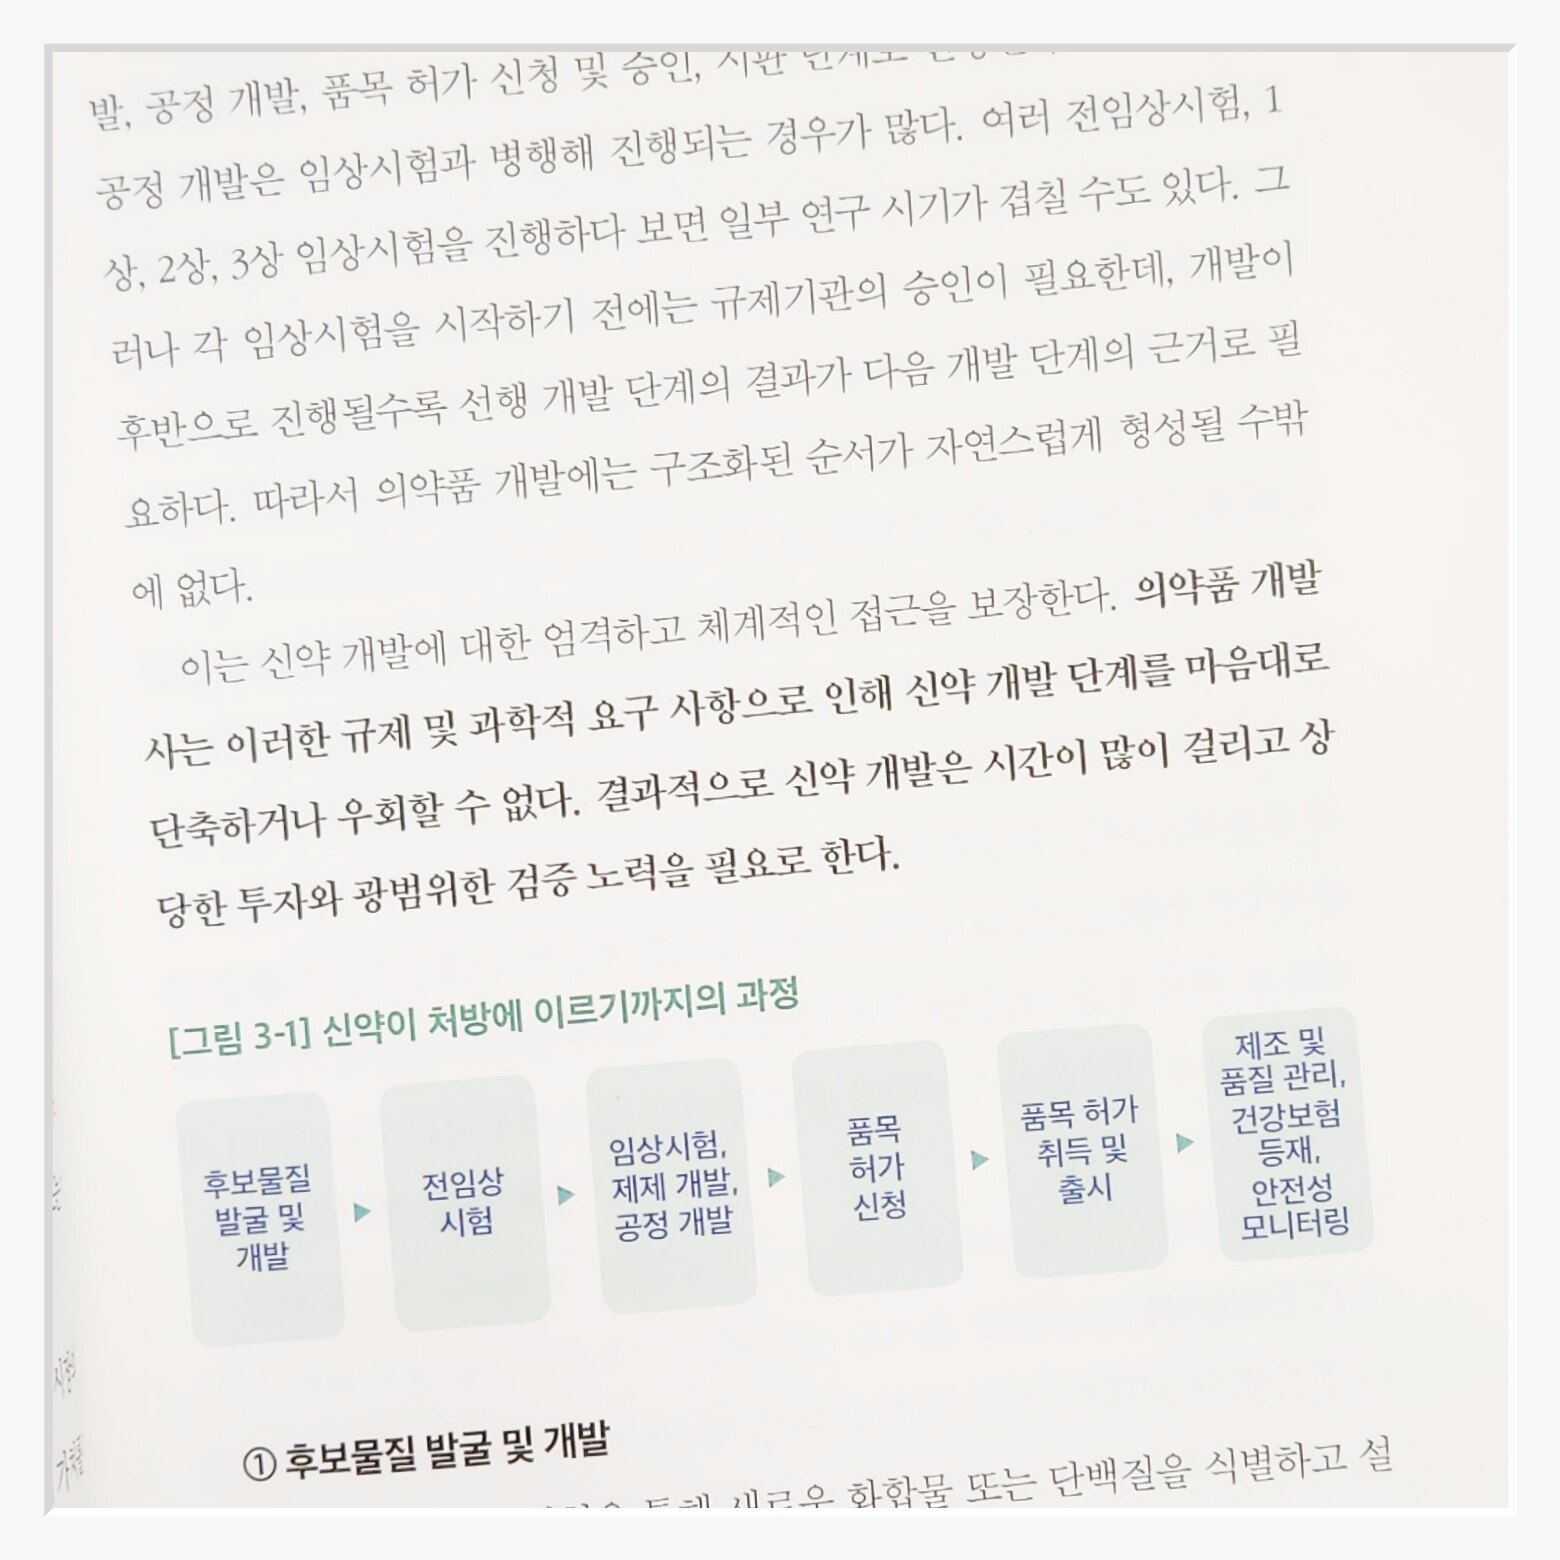 발, 공정 개발, 품목 허가 신청 및 승인, 시판 단계로
공정 개발은 임상시험과 병행해 진행되는 경우가 많다. 여러 전임상시험, 1
상, 2상, 3상 임상시험을 진행하다 보면 일부 연구 시기가 겹칠 수도 있다. 그
러나 각 임상시험을 시작하기 전에는 규제기관의 승인이 필요한데, 개발이
후반으로 진행될수록 선행 개발 단계의 결과가 다음 개발 단계의 근거로 필
요하다. 따라서 의약품 개발에는 구조화된 순서가 자연스럽게 형성될 수밖
에 없다.
이는 신약 개발에 대한 엄격하고 체계적인 접근을 보장한다. 의약품 개발
사는 이러한 규제 및 과학적 요구 사항으로 인해 신약 개발 단계를 마음대로
단축하거나 우회할 수 없다. 결과적으로 신약 개발은 시간이 많이 걸리고 상
당한 투자와 광범위한 검증 노력을 필요로 한다.
[그림 3-1] 신약이 처방에 이르기까지의 과정
후보물질
발굴 및
개발
전임상
시험
임상시험,
제제 개발,
공정 개발
품목
허가
신청
품목 허가
취득 및
출시
제조 및
품질 관리,
건강보험
등재,
안전성
모니터링
① 후보물질 발굴 및 개발
통해 새로운 화합물 또는 단백질을 식별하고 설